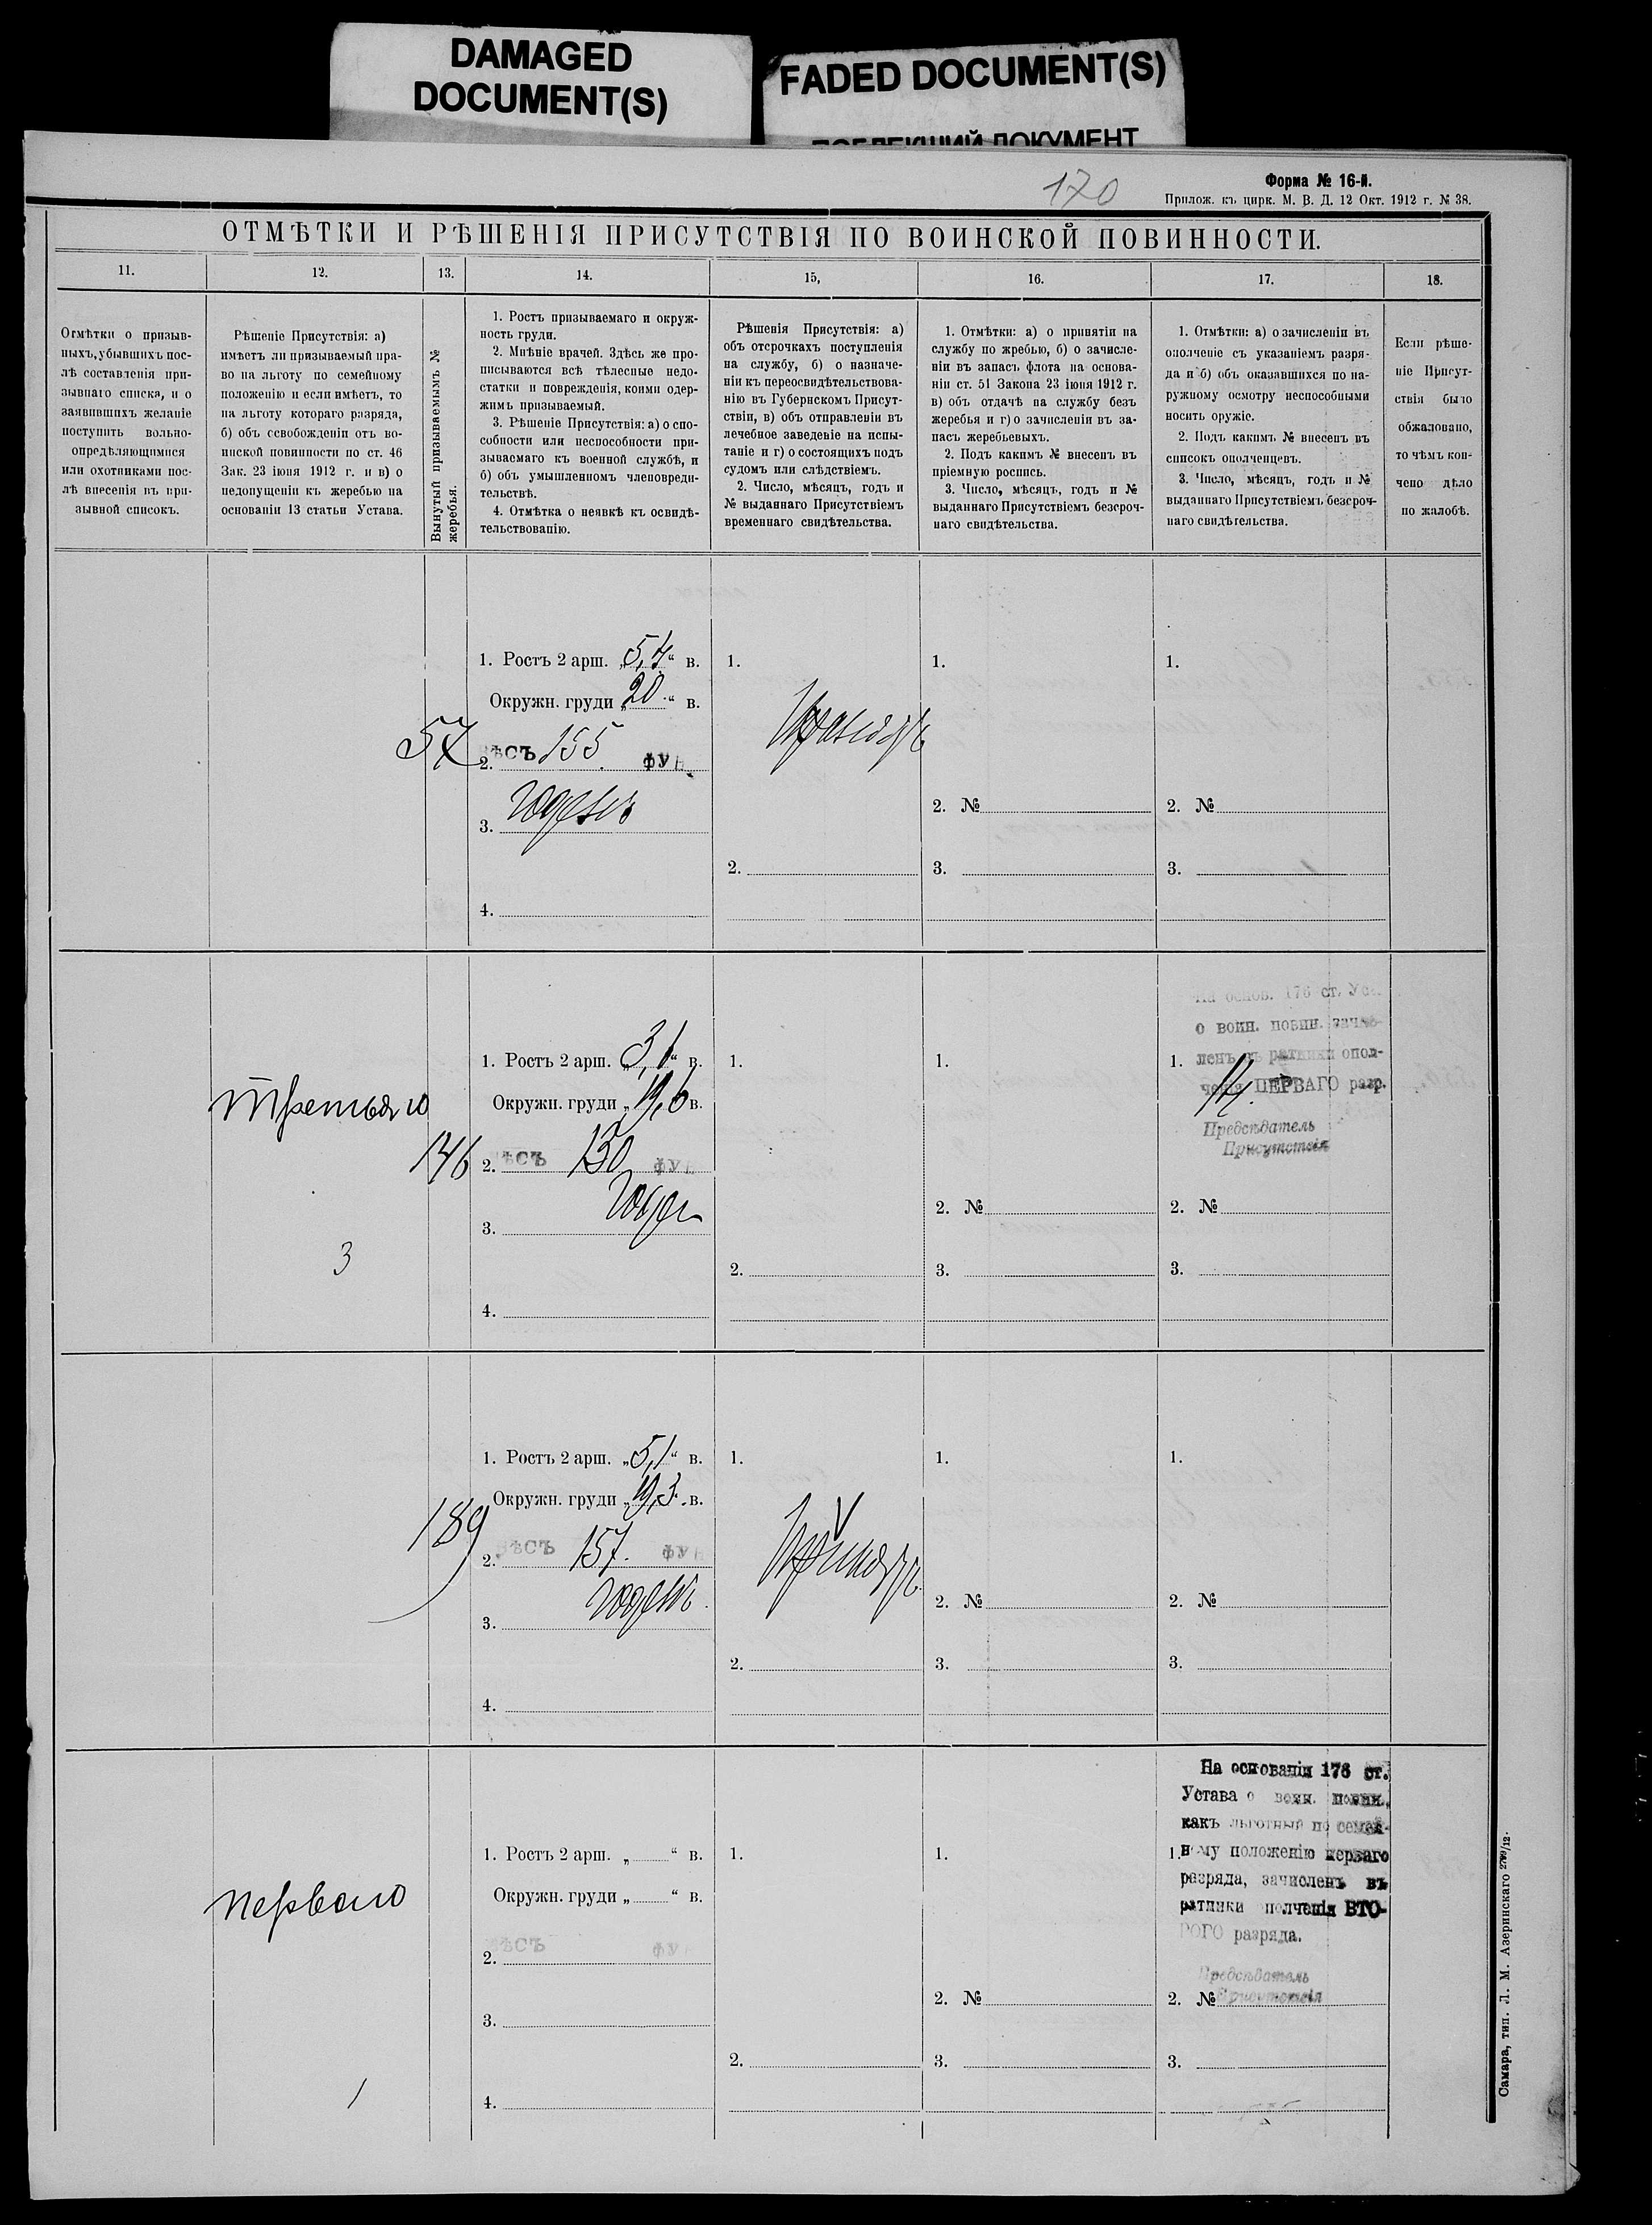 DAMAGED
DOCUMENT(S)
FADED DOCUMENT(S)
ПОБЛЕКШИЙ ДОКУМЕНТ
170
Форма № 16-й.
Прилож. къ цирк. М. В. Д. 12 Окт. 1912 г. № 38.
ОТМѢТКИ И РѢШЕНІЯ ПРИСУТСТВІЯ ПО ВОИНСКОЙ ПОВИННОСТИ.
11.
12.
13.
14.
15,
16.
17.
18.
Отмѣтки о призыв-
ныхъ, убывшихъ пос-
лѣ составленія при-
зывнаго списка, и о
заявившихъ желаніе
поступить вольно-
опредѣляющимися
или охотниками пос-
лѣ внесенія въ при-
зывной списокъ.
Рѣшеніе Присутствія: а)
имѣетъ ли призываемый пра-
во на льготу по семейному
положенію и если имѣетъ, то
на льготу котораго разряда,
б) объ освобожденіи отъ во-
инской повинности по ст. 46
Зак. 23 іюня 1912 г. и в) о
недопущеніи къ жеребью на
основаніи 13 статьи Устава.
Вынутый призываемымъ №
жеребья.
1. Ростъ призываемаго и окруж-
ность груди.
2. Мнѣніе врачей. Здѣсь же про-
писываются всѣ тѣлесные недо-
статки и поврежденія, коими одер-
жимъ призываемый.
3. Рѣшеніе Присутствія: а) о спо-
собности или неспособности при-
зываемаго къ военной службѣ, и
б) объ умышленномъ членовреди-
тельствѣ.
4. Отмѣтка о неявкѣ къ освидѣ-
тельствованію.
Рѣшенія Присутствія: а)
объ отсрочкахъ поступленія
на службу, б) о назначе-
ніи къ переосвидѣтельствова-
нію въ Губернскомъ Присут-
ствіи, в) объ отправленіи въ
лечебное заведеніе на испы-
таніе и г) о состоящихъ подъ
судомъ или слѣдствіемъ.
2. Число, мѣсяцъ, годъ и
№ выданнаго Присутствіемъ
временнаго свидѣтельства.
1. Отмѣтки: а) о принятіи на
службу по жребью, б) о зачисле-
ніи въ запасъ флота на основа-
ніи ст. 51 Закона 23 іюня 1912 г.
в) объ отдачѣ на службу безъ
жеребья и г) о зачисленіи въ за-
пасъ жеребьевыхъ.
2. Подъ какимъ № внесенъ въ
пріемную роспись.
3. Число, мѣсяцъ, годъ и №
выданнаго Присутствіемъ безсроч-
наго свидѣтельства.
1. Отмѣтки: а) о зачисленіи въ
ополченіе съ указаніемъ разря-
да и б) объ оказавшихся по на-
ружному осмотру неспособными
носить оружіе.
2. Подъ какимъ № внесенъ въ
списокъ ополченцевъ.
3. Число, мѣсяцъ, годъ и №
выданнаго Присутствіемъ безсроч-
наго свидѣтельства.
Если рѣше-
ніе Присут-
ствія было
обжаловано,
то чѣмъ кон-
чено дѣло
по жалобѣ.
57
1. Ростъ 2 арш. „5,7“ в.
Окружн. груди „20“ в.
2. ВѢСЪ 155 ФУН
3. Годенъ
4.
1.
2.
1.
2. №
3.
1.
2. №
3.
Третьяго
3
146
1. Ростъ 2 арш. „3,1“ в.
Окружн. груди „19,6 в.
2. ВѢСЪ 130 ФУН
3. Годен
4.
1.
2.
1.
2. №
3.
На основ. 176 ст. Уст.
о воин. повин. зачис-
1. ленъ въ ратники опол-
ченія ПЕРВАГО разр.
Предсѣдатель
Присутствія
2. №
3.
189
1. Ростъ 2 арш. „5,1“ в.
Окружн. груди „19,3“ в.
2. ВѢСЪ 157. ФУН
3. Годенъ.
4.
1.
2.
1.
2. №
3.
1.
2. №
3.
Перваго
1
1. Ростъ 2 арш. „ “ в.
Окружн. груди „ “ в.
2. ВѢСЪ ФУН
3.
4.
1.
2.
1.
2. №
3.
На основаніи 176 ст.
Устава о воин. повин.,
какъ льготный по семей-
1. ному положенію перваго
разряда, зачисленъ въ
ратники полченія ВТО-
РОГО разряда.
Предсѣдатель
2. № Присутствія
3.
Самара, тип. Л. М. Азеринскаго 2799/12.